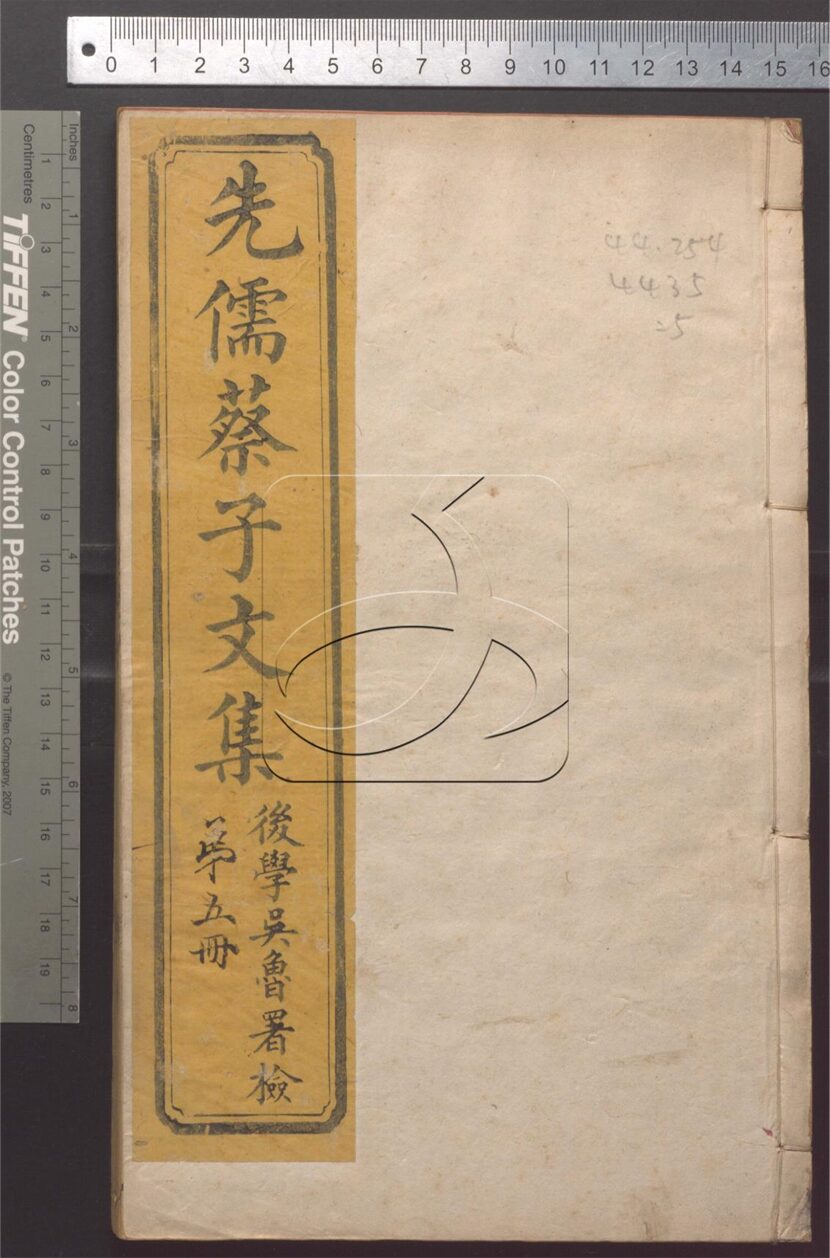 0 1 2 3 4 5 6 7 8 9 10 11 12 13 14 15 16
Inches
Centimetres
1 2 3 4 5 6 7 8
1 2 3 4 5 6 7 8 9 10 11 12 13 14 15 16 17 18 19
TIFFEN® Color Control Patches
© The Tiffen Company, 2007
44.254
4435
:5
先儒蔡子文集
後學吳魯署檢
第五冊